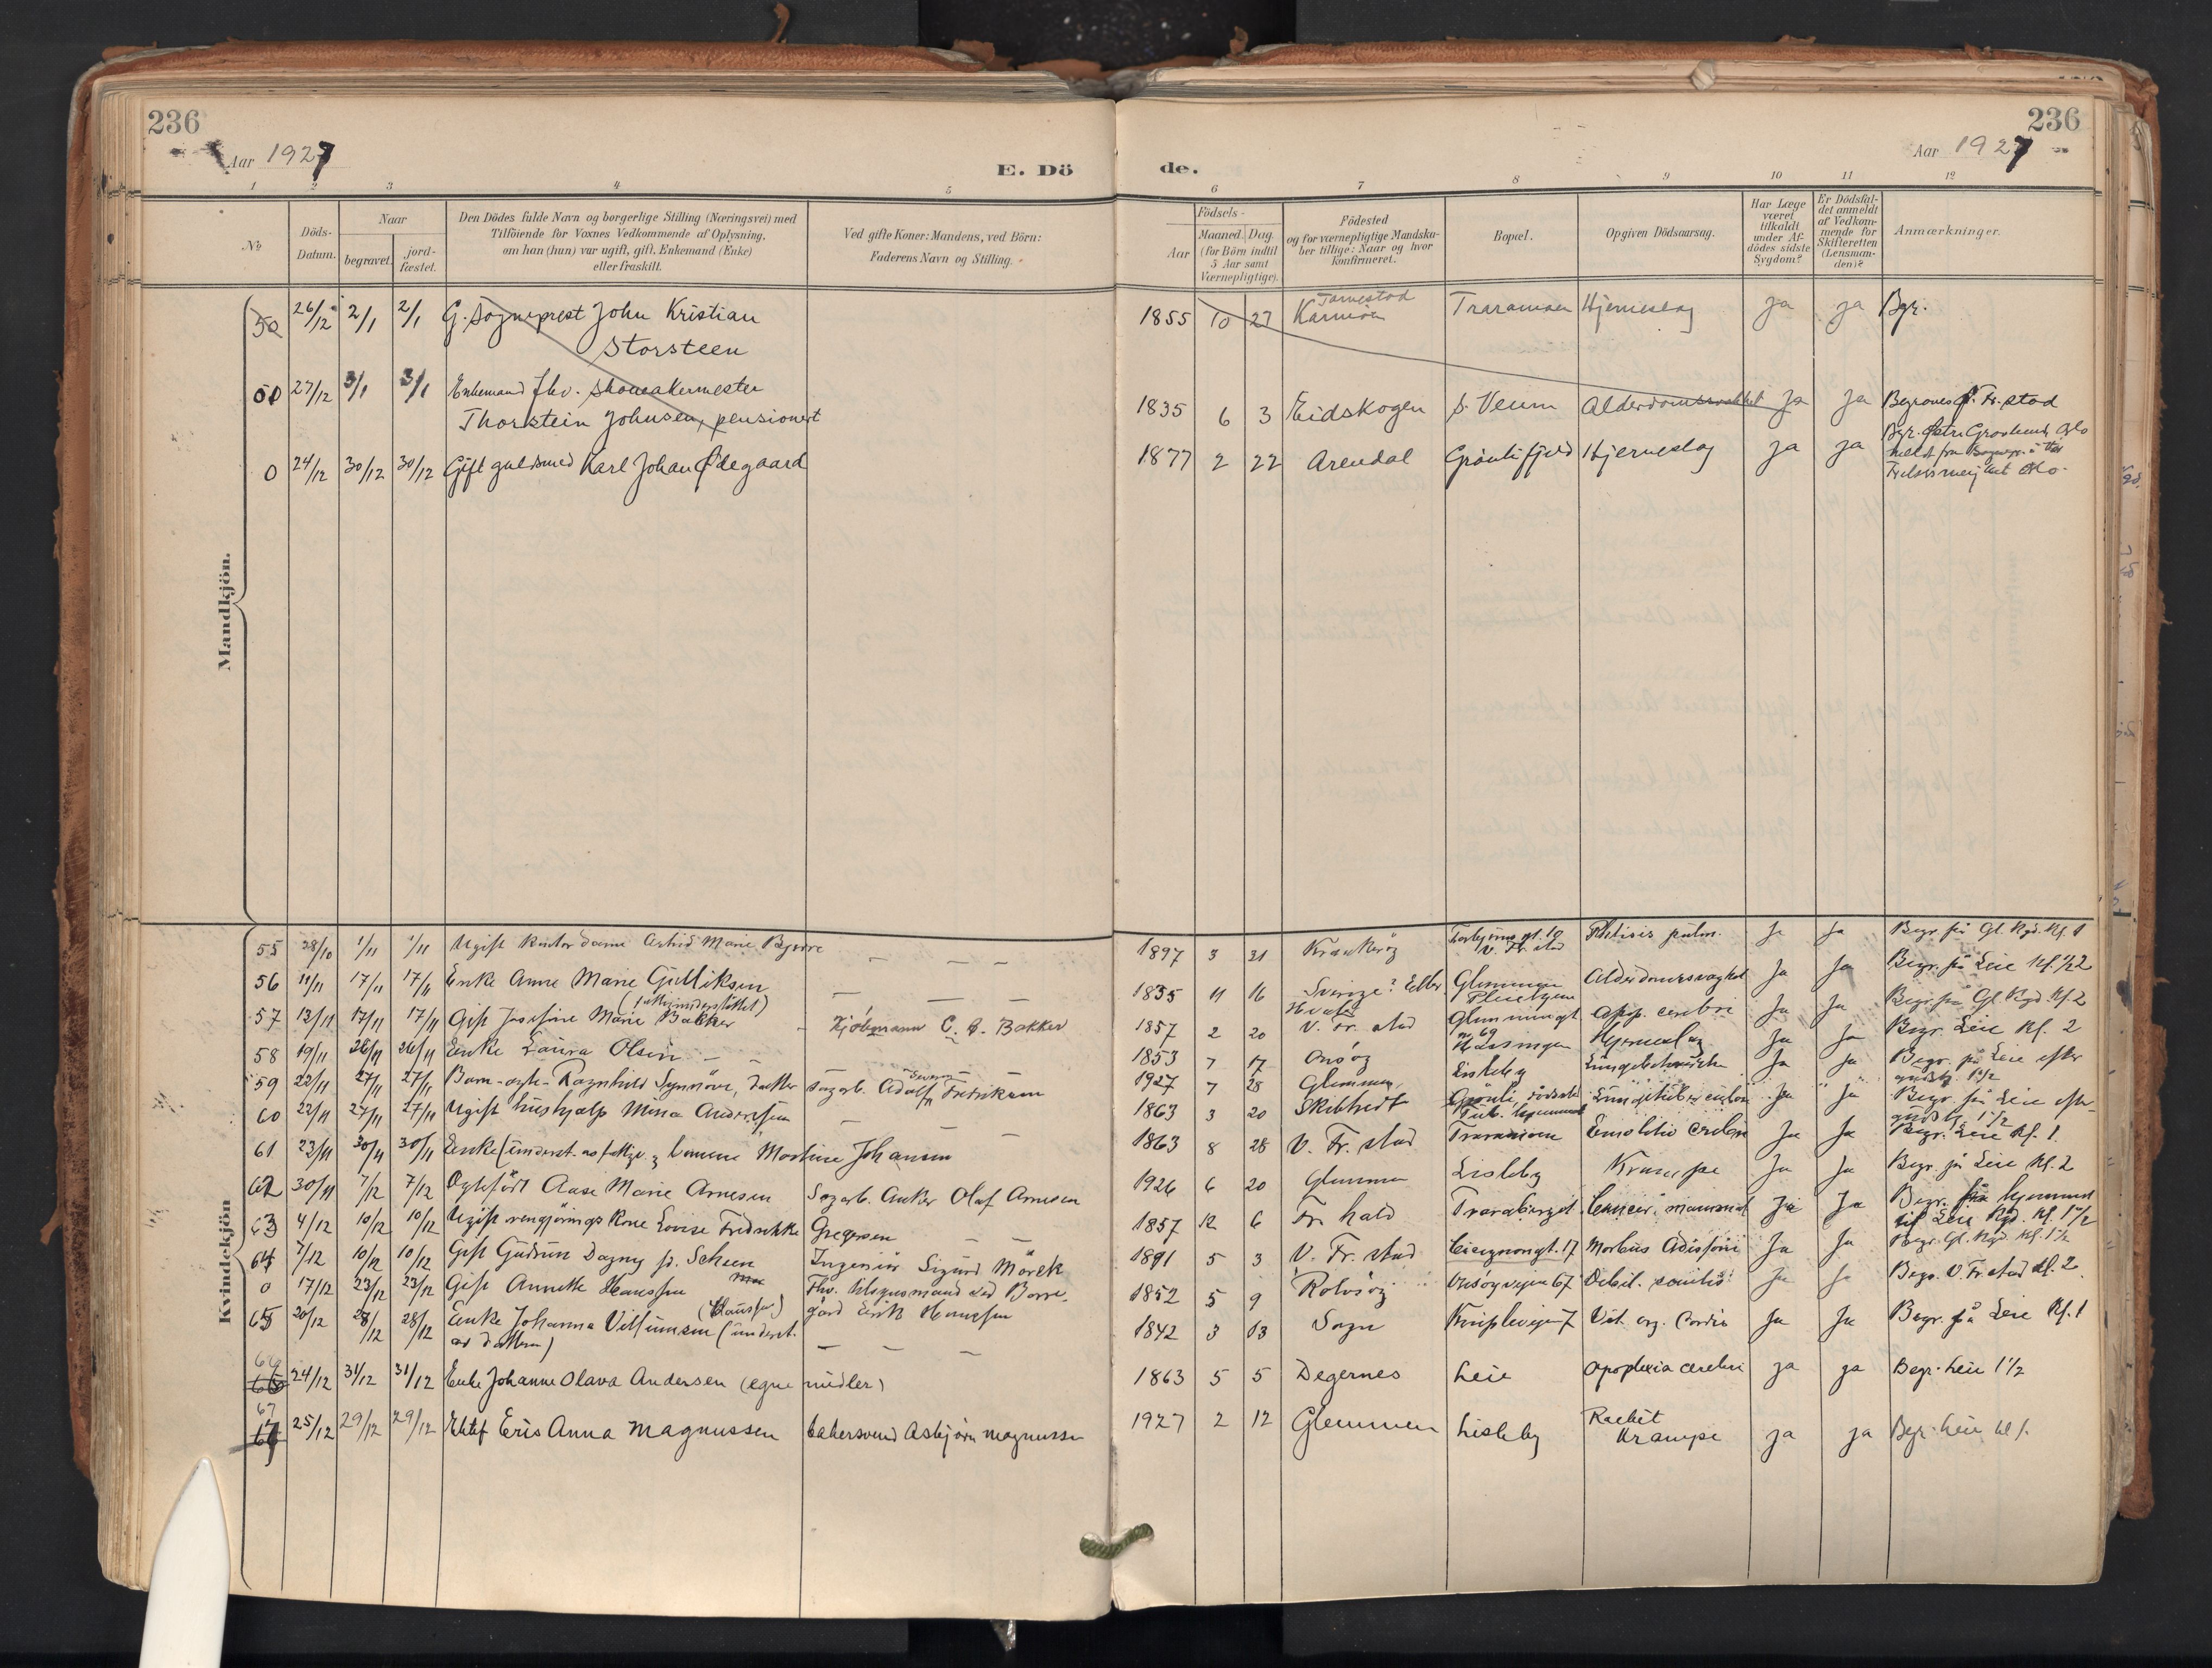 236
Aar 1927
E. Dö
1 2 3 4 5
No
Döds-
Datum.
Naar
begravet.
jord-
fæstet.
Den Dödes fulde Navn og borgerlige Stilling (Næringsvei) med
Tilföiende for Voxnes Vedkommende af Oplysning,
om han (hun) var ugift, gift, Enkemand (Enke)
eller fraskilt.
Ved gifte Koner: Mandens, ved Börn:
Faderens Navn og Stilling.
Mandkjön.
50 26/12 2/1 2/1 G. Sogneprest John Kristian
Storsteen
50 27/12 3/1 3/1 Enkemand fhv. skomakermester
Thorstein Johnsen, pensionert
0 24/12 30/12 30/12 Gift guldsmed Karl Johan Ødegaard
Kvindekjön
55 28/10 1/11 1/11 Ugift kontordame Astrid Marie Bjerre — — —
56 11/11 17/11 17/11 Enke Anne Marie Gulliksen — — —
(fattigunderstöttet)
57 12/11 17/11 17/11 Gift Josefine Marie Bakker Kjöbmann C. B. Bakker
58 19/11 26/11 26/11 Enke Laura Olsen — —
59 22/11 27/11 27/11 Barn - egte - Ragnhild Synnöve, datter Sagarb. Adolf Severin Fredriksen
60 22/11 27/11 27/11 Ugift hushjælp Mina Andersen — — —
61 23/11 30/11 30/11 Enke (underst. av fattigv. Martine Johansen
62 30/11 7/12 7/12 Egtefödt Aase Marie Arnesen Sagarb. Anker Olaf Arnesen
63 4/12 10/12 10/12 Ugift rengjöringskone Lovise Fredrikke Gregersen — —
64 7/12 10/12 10/12 Gift Gudrun Dagny f. Scheen Ingeniör Sigurd Mörck
0 17/12 23/12 23/12 Gift Annette Hanssen Fhv. tilsynsmand ved Borre-
gård Erik Hanssen
65 20/12 28/12 28/12 Enke Johanna Villumsen (underst.
av datteren) — — —
66 24/12 31/12 31/12 Enke Johanne Olava Andersen (egne midler)
67 25/12 29/12 29/12 Ektef Eris Anna Magnussen bakersvend Asbjørn Magnussen
236
Aar 1927
de.
6 7 8 9 10 11 12
Födsels-
Aar
Maaned. Dag
(for Börn indtil
5 Aar samt
Værnepligtige).
Födested
og for værnepligtige Mandska-
ber tillige: Naar og hvor
konfirmeret.
Bopæl.
Opgiven Dödsaarsag.
Har Læge
været
tilkaldt
under Af-
dödes sidste
Sygdom?
Er Dödsfal-
det anmeldt
af Vedkom-
mende for
Skifteretten
(Lensman-
den)?
Anmærkninger.
1855 10 27 Karmöen Traramoen Hjerneslag ja ja Bgr.
1835 6 3 Eidskogen S. Veum Alderdomssvakhet Ja Ja Begraves Ø. Fr.stad
1877 2 22 Arendal Grönlifjeld Hjerneslag ja ja
1897 3 31 Kråkeröy V. Fr. stad Phtisis pulm. Ja Ja Begr. på Gl. Kgd. Kl. 1
1835 11 16 Sverige? Glemmen Alderdomssvaghet Ja Ja Begr. på Leie Kl. 1 1/2
Pleiehjem
1857 2 20 V. Fr. stad Glemmengt. 69 Apop. cerebri Ja Ja Begr. på Gl. Kgd. Kl. 2
1853 7 17 Onsöy Hassingen Hjerneslag Ja Ja Begr. Leie Kl. 2
1927 7 28 Glemmen Lisleby Lungebetændelse Ja Ja Begr. på Leie efter
gudstj. 1 1/2
1863 3 20 Skibtvedt Tub. hjemmet Ja Ja Begr. på Leie efter
gudstj. 1 1/2
1863 8 28 V. Fr. stad Traramoen Emolitio cerebri Ja Ja Begr. Leie Kl. 1.
1926 6 20 Glemmen Lisleby Krampe Ja Ja Begr. på Leie Kl. 2
1857 12 6 Fr. hald Traraberget Cancer mammae Ja Ja Begr. fra hjemmet
til Leie Kgd. Kl. 1 1/2
1891 5 3 V. Fr. stad 17 Morbus Adisoni Ja Ja Begr. Gl. Kgd. Kl. 1 1/2
1852 5 9 Rolvsöy Onsöyveien 67 Debil. senilis Ja Ja Begr. V. Fr.stad Kl. 2
1842 3 13 Sogn Knipleveien 7 Vit. org. Cordis Ja Ja Begr. på Leie Kl. 1
1863 5 5 Degernes Leie Apoplexia cerebri ja ja Begr. Leie 1 1/2
1927 2 12 Glemmen Lisleby Rachit
Krampe ja ja Begr. Leie kl 1.